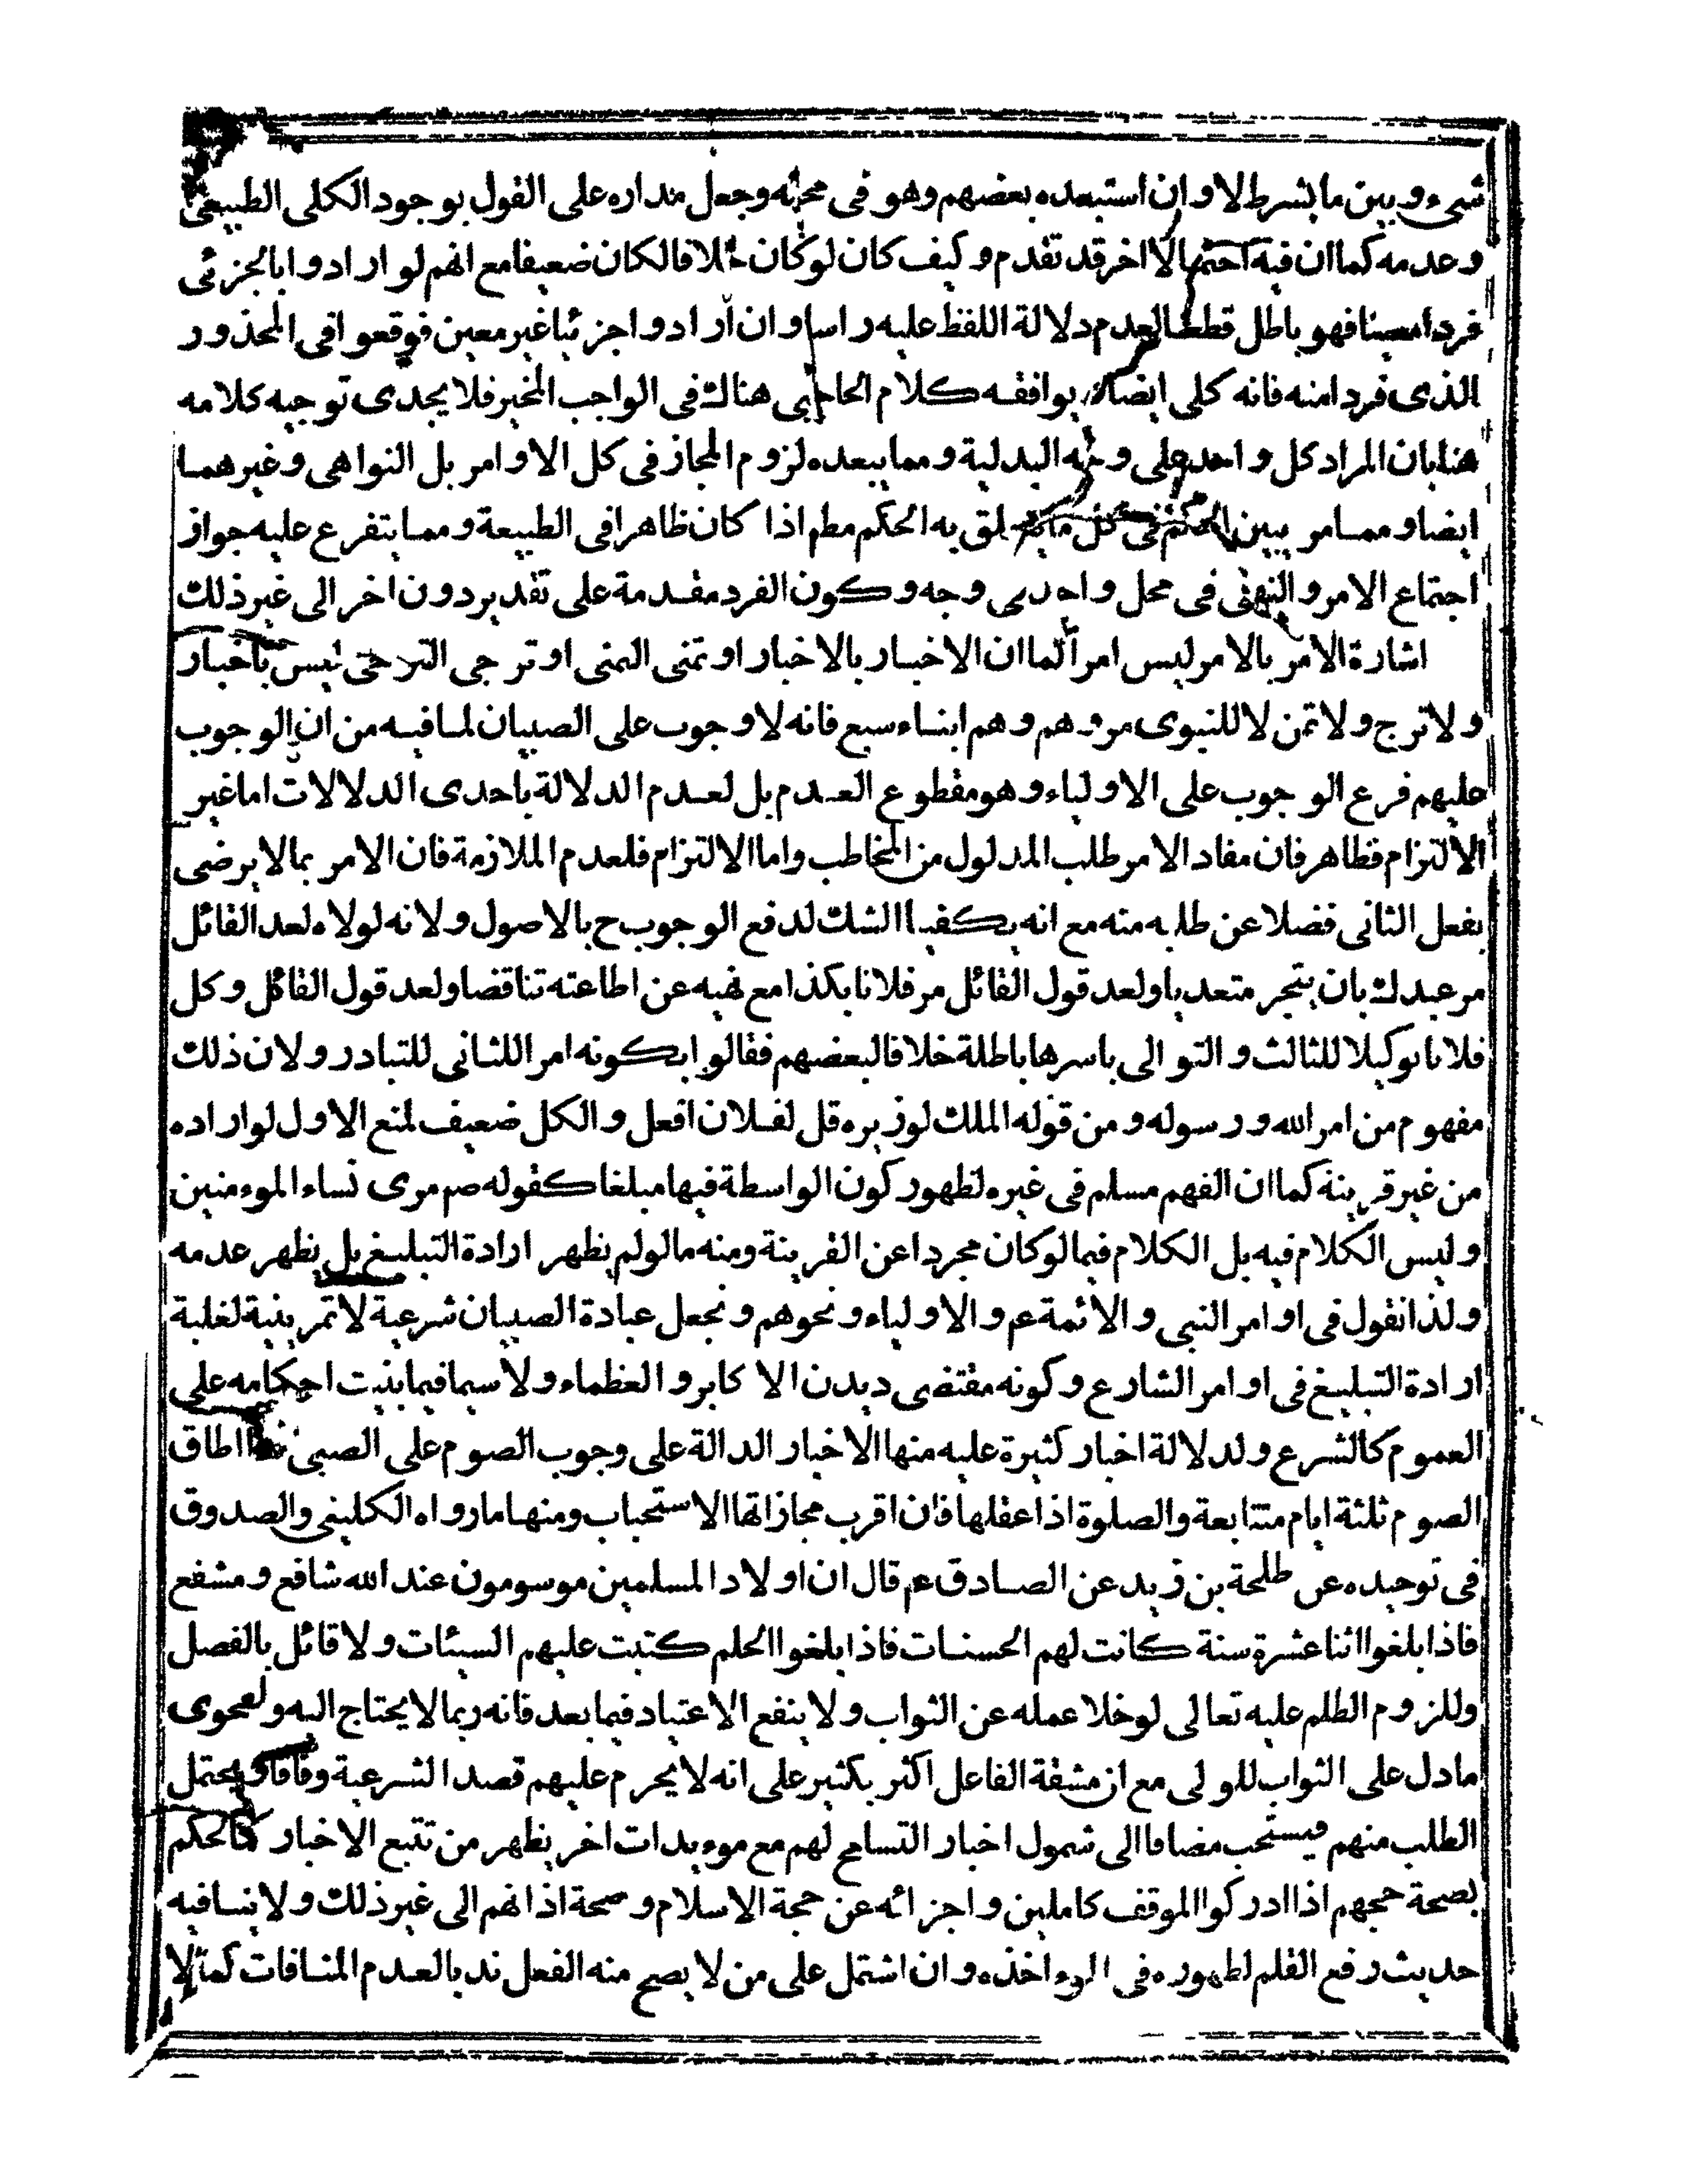 شىء وبين ما بشرط لا وان استبعده بعضهم وهو فى محله وجعل مداره على القول بوجود الكلى الطبيعى
وعدمه كما ان فيه احتمالا اخر قد تقدم وكيف كان لو كان خلافا لكان ضعيفا مع انهم لو ارادوا بالجزئى
فردا معينا فهو باطل قطعا لعدم دلالة اللفظ عليه راسا وان ارادوا جزئيا غير معين فوقعوا فى المحذور
الذى فردا منه فانه كلى ايضا يوافقه كلام الحاجبى هناك فى الواجب المخير فلا يجدى توجيه كلامه
هنا بان المراد كل واحد على وجه البدلية ومما يبعده لزوم المجاز فى كل الاوامر بل النواهى وغيرهما
ايضا ومما مر يبين الحكم فى كل ما يتعلق به الحكم مطم اذا كان ظاهرا فى الطبيعة ومما يتفرع عليه جواز
اجتماع الامر والنهى فى محل واحد وجه وكون الفرد مقدمة على تقدير دون اخر الى غير ذلك
اشارة الامر بالامر ليس امرا كما ان الاخبار بالاخبار او تمنى التمنى او ترجى الترجى ليس باخبار
ولا ترج ولا تمن لا للنبوى مروهم وهم ابناء سبع فانه لا وجوب على الصبيان لما فيه من ان الوجوب
عليهم فرع الوجوب على الاولياء وهو مقطوع العدم بل لعدم الدلالة باحدى الدلالات اما غير
الالتزام فظاهر فان مفاد الامر طلب المدلول من المخاطب واما الالتزام فلعدم الملازمة فان الامر بما لا يرضى
بفعل الثانى فضلا عن طلبه منه مع انه يكفينا الشك لدفع الوجوب ح بالاصول ولانه لولاه لعد القائل
مر عبدك بان يتجر متعديا ولعد قول القائل مر فلانا بكذا مع نهيه عن اطاعته تناقضا ولعد قول القائل وكل
فلانا توكيلا للثالث والتوالى باسرها باطلة خلافا لبعضهم فقالوا بكونه امرا للثانى للتبادر ولان ذلك
مفهوم من امر الله ورسوله ومن قوله الملك لوزيره قل لفلان افعل والكل ضعيف لمنع الاول لو اراده
من غير قرينة كما ان الفهم مسلم فى غيره لظهور كون الواسطة فيها مبلغا كقوله صم مرى نساء الموءمنين
وليس الكلام فيه بل الكلام فيما لو كان مجردا عن القرينة ومنه ما لو لم يظهر ارادة التبليغ بل يظهر عدمه
ولذا نقول فى اوامر النبى والائمة عم والاولياء ونحوهم ونجعل عبادة الصبيان شرعية لا تمرينية لغلبة
ارادة التبليغ فى اوامر الشارع وكونه مقتضى ديدن الاكابر والعظماء ولا سيما فيما بنيت احكامه على
العموم كالشرع ولدلالة اخبار كثيرة عليه منها الاخبار الدالة على وجوب الصوم على الصبى اذا اطاق
الصوم ثلثة ايام متتابعة والصلوة اذا عقلها فان اقرب مجازاتها الاستحباب ومنها ما رواه الكلينى والصدوق
فى توحيده عن طلحة بن زيد عن الصادق عم قال ان اولاد المسلمين موسومون عند الله شافع ومشفع
فاذا بلغوا اثنا عشرة سنة كانت لهم الحسنات فاذا بلغوا الحلم كتبت عليهم السيئات ولا قائل بالفصل
وللزوم الظلم عليه تعالى لو خلا عمله عن الثواب ولا ينفع الاعتياد فيما بعد فانه ربما لا يحتاج اليه ولفحوى
ما دل على الثواب للولى مع ان مشقة الفاعل اكثر بكثير على انه لا يحرم عليهم قصد الشرعية وفاقا ويحتمل
الطلب منهم فيستحب مضافا الى شمول اخبار التسامح لهم مع موءيدات اخر يظهر من تتبع الاخبار كالحكم
بصحة حجهم اذا ادركوا الموقف كاملين واجزائه عن حجة الاسلام وصحة اذانهم الى غير ذلك ولا ينافيه
حديث رفع القلم لظهوره فى الموءاخذه وان اشتمل على من لا يصح منه الفعل ندبا لعدم المنافات كما لا